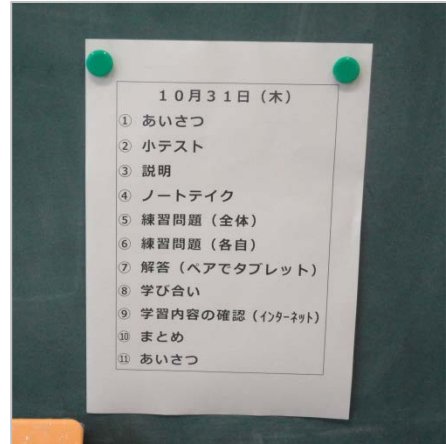 10月31日（木）
① あいさつ
② 小テスト
③ 説明
④ ノートテイク
⑤ 練習問題（全体）
⑥ 練習問題（各自）
⑦ 解答（ペアでタブレット）
⑧ 学び合い
⑨ 学習内容の確認（インターネット）
⑩ まとめ
⑪ あいさつ